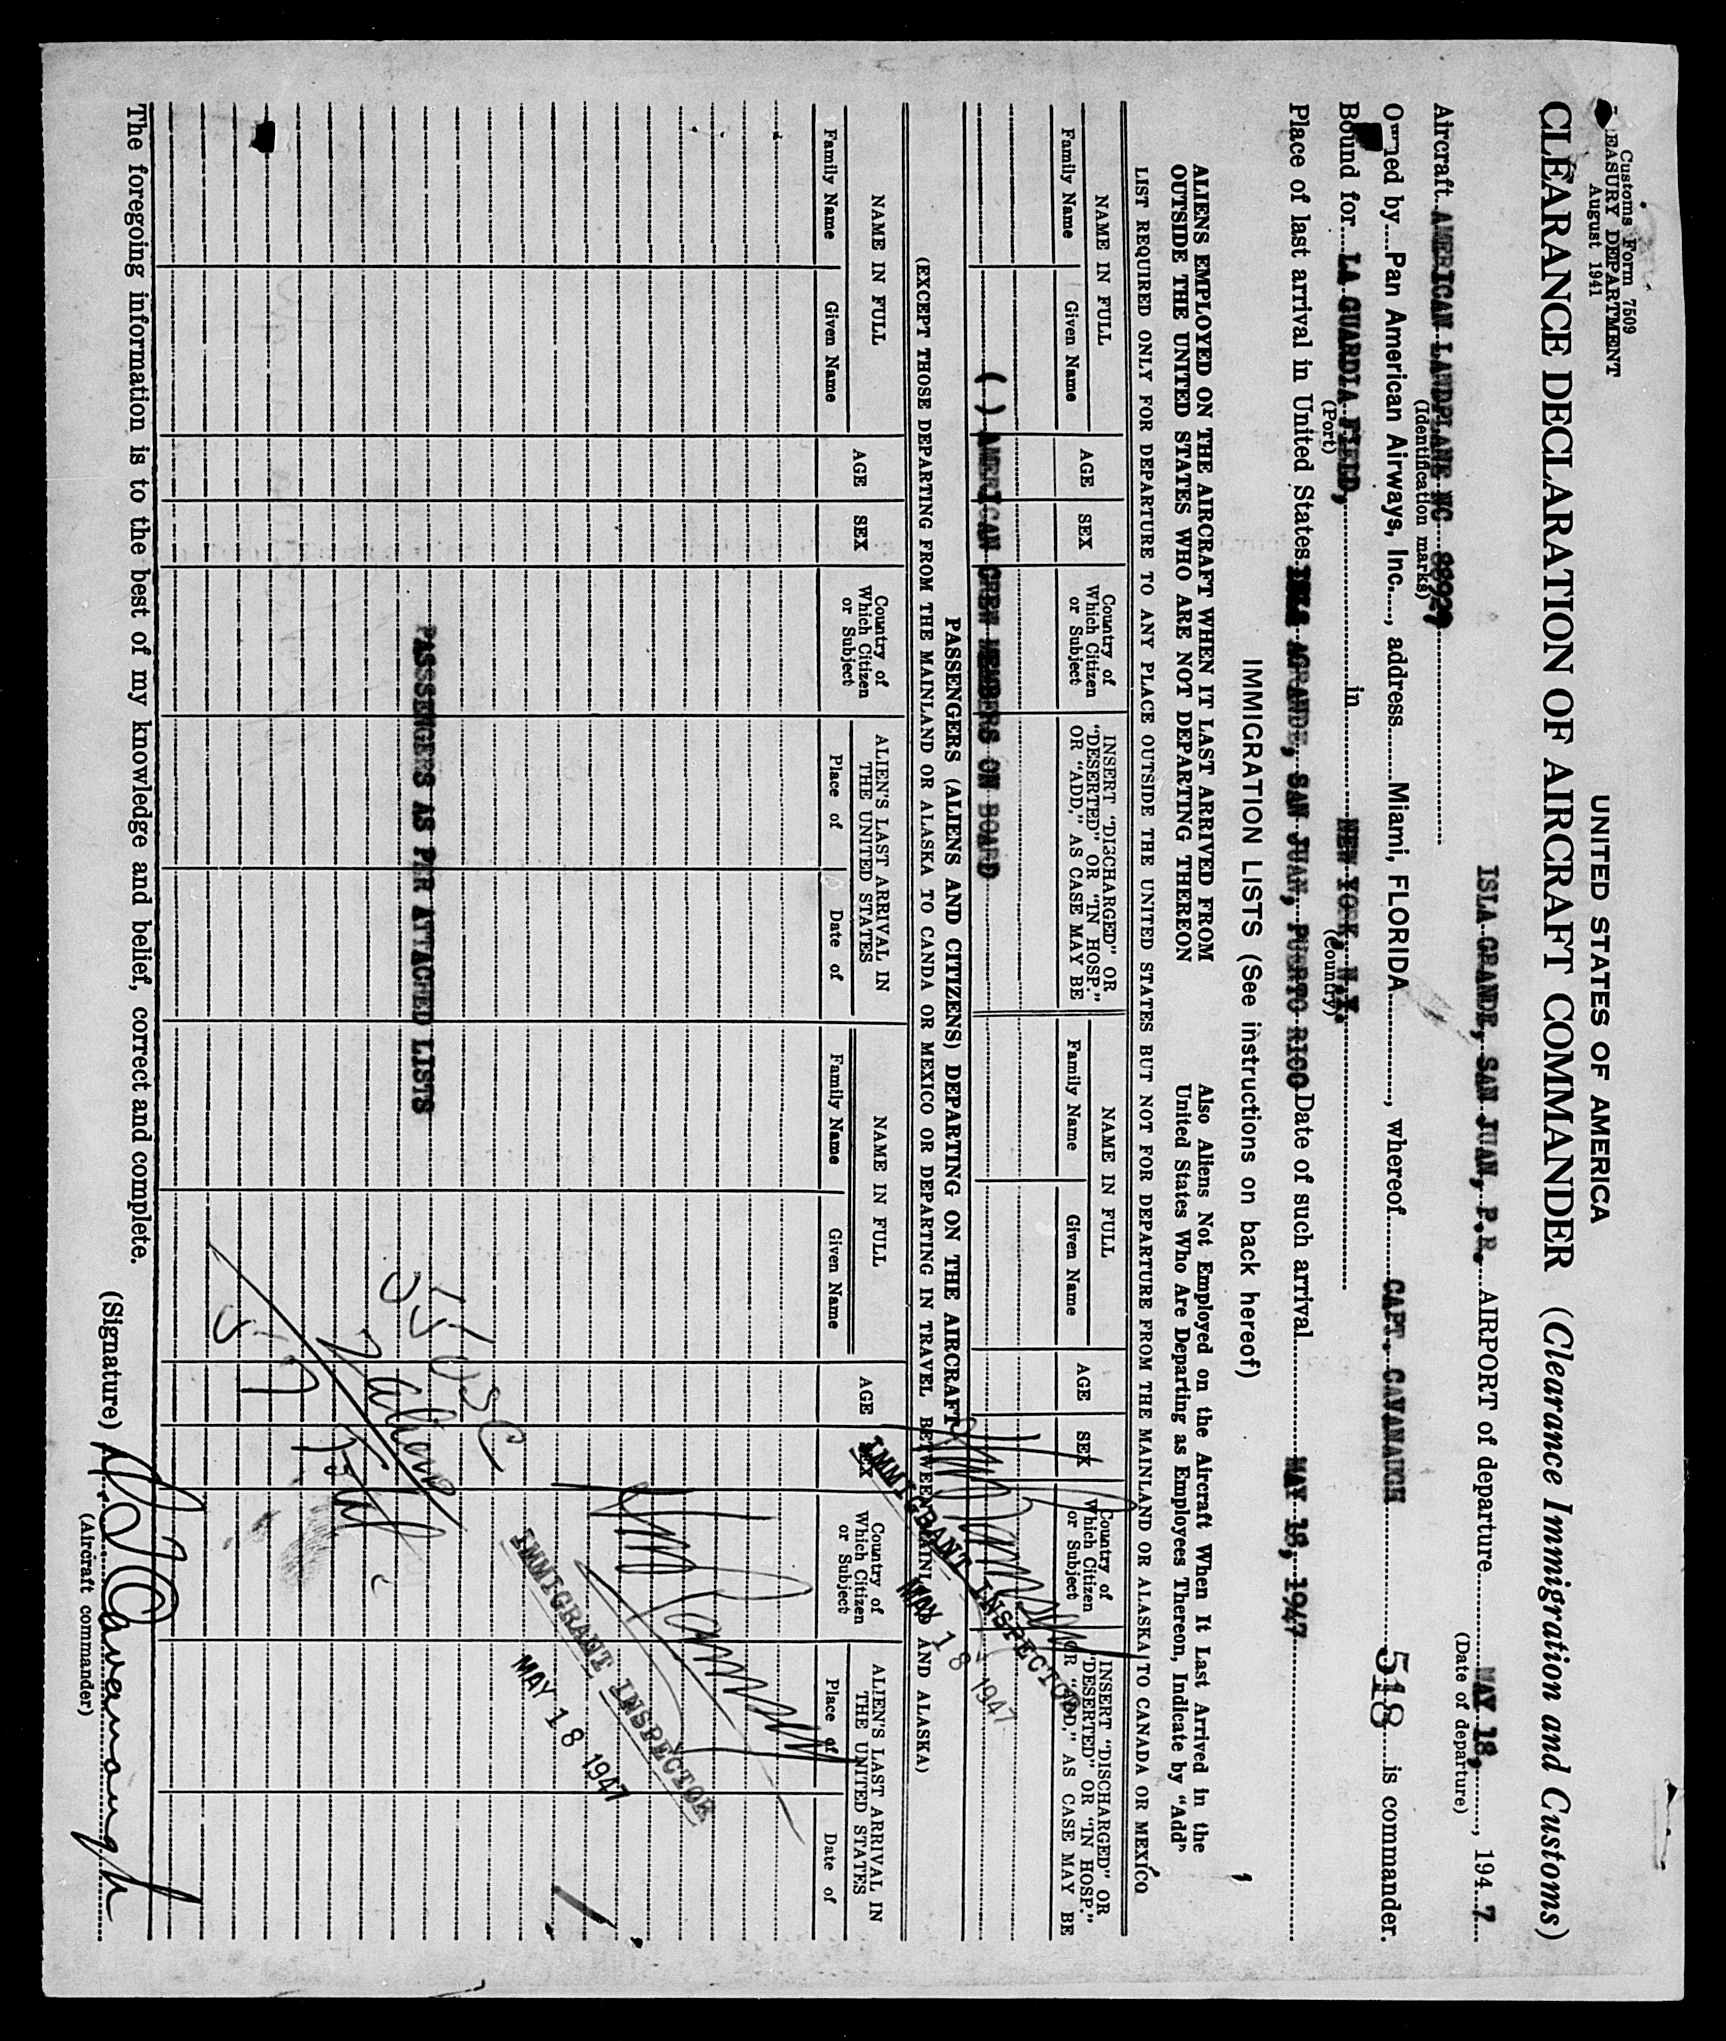 Customs Form 7509
TREASURY DEPARTMENT
August 1941
UNITED STATES OF AMERICA
CLEARANCE DECLARATION OF AIRCRAFT COMMANDER (Clearance Immigration and Customs)
ISLA GRANDE, SAN JUAN, P.R. AIRPORT of departure MAY 18, 1947
(Date of departure)
Aircraft AMERICAN LANDPLANE NC 88927
(Identification marks)
Owned by Pan American Airways, Inc., address Miami, FLORIDA, whereof CAPT. CAVANAUGH 518 is commander.
Bound for LA GUARDIA FIELD, in NEW YORK, N.Y.
(Port) (Country)
Place of last arrival in United States ISLA GRANDE, SAN JUAN, PUERTO RICO Date of such arrival MAY 18, 1947
IMMIGRATION LISTS (See instructions on back hereof)
ALIENS EMPLOYED ON THE AIRCRAFT WHEN IT LAST ARRIVED FROM
OUTSIDE THE UNITED STATES WHO ARE NOT DEPARTING THEREON
Also Aliens Not Employed on the Aircraft When It Last Arrived in the
United States Who Are Departing as Employees Thereon, Indicate by "Add"
LIST REQUIRED ONLY FOR DEPARTURE TO ANY PLACE OUTSIDE THE UNITED STATES BUT NOT FOR DEPARTURE FROM THE MAINLAND OR ALASKA TO CANADA OR MEXICO
NAME IN FULL
Family Name Given Name
AGE
SEX
Country of
Which Citizen
or Subject
INSERT "DISCHARGED" OR
"DESERTED" OR "IN HOSP."
OR "ADD," AS CASE MAY BE
NAME IN FULL
Family Name Given Name
AGE
SEX
Country of
Which Citizen
or Subject
INSERT "DISCHARGED" OR
"DESERTED" OR "IN HOSP."
OR "ADD," AS CASE MAY BE
( ) AMERICAN CREW MEMBERS ON BOARD
IMMIGRANT INSPECTOR
MAY 18 1947
PASSENGERS (ALIENS AND CITIZENS) DEPARTING ON THE AIRCRAFT
(EXCEPT THOSE DEPARTING FROM THE MAINLAND OR ALASKA TO CANDA OR MEXICO OR DEPARTING IN TRAVEL BETWEEN MAINLAND AND ALASKA)
NAME IN FULL
Family Name Given Name
AGE
SEX
Country of
Which Citizen
or Subject
ALIEN'S LAST ARRIVAL IN
THE UNITED STATES
Place of Date of
NAME IN FULL
Family Name Given Name
AGE
SEX
Country of
Which Citizen
or Subject
ALIEN'S LAST ARRIVAL IN
THE UNITED STATES
Place of Date of
IMMIGRANT INSPECTOR
MAY 18 1947
PASSSENGERS AS PER ATTACHED LISTS
55 USC
2 aliens
57 Total
The foregoing information is to the best of my knowledge and belief, correct and complete.
(Signature) Cavanaugh
(Aircraft commander)